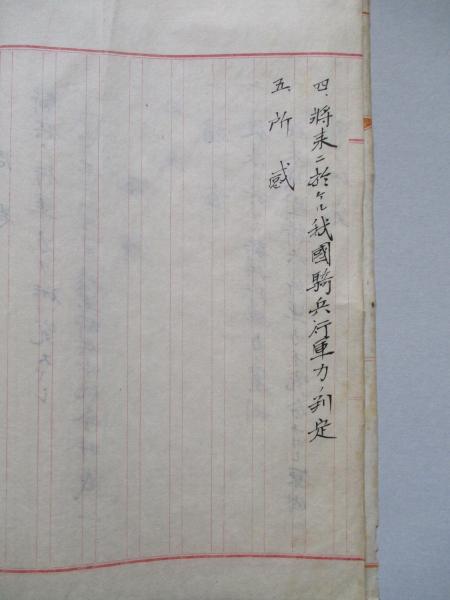 四、将来ニ於ケル我國騎兵行軍力ノ判定
五、所感